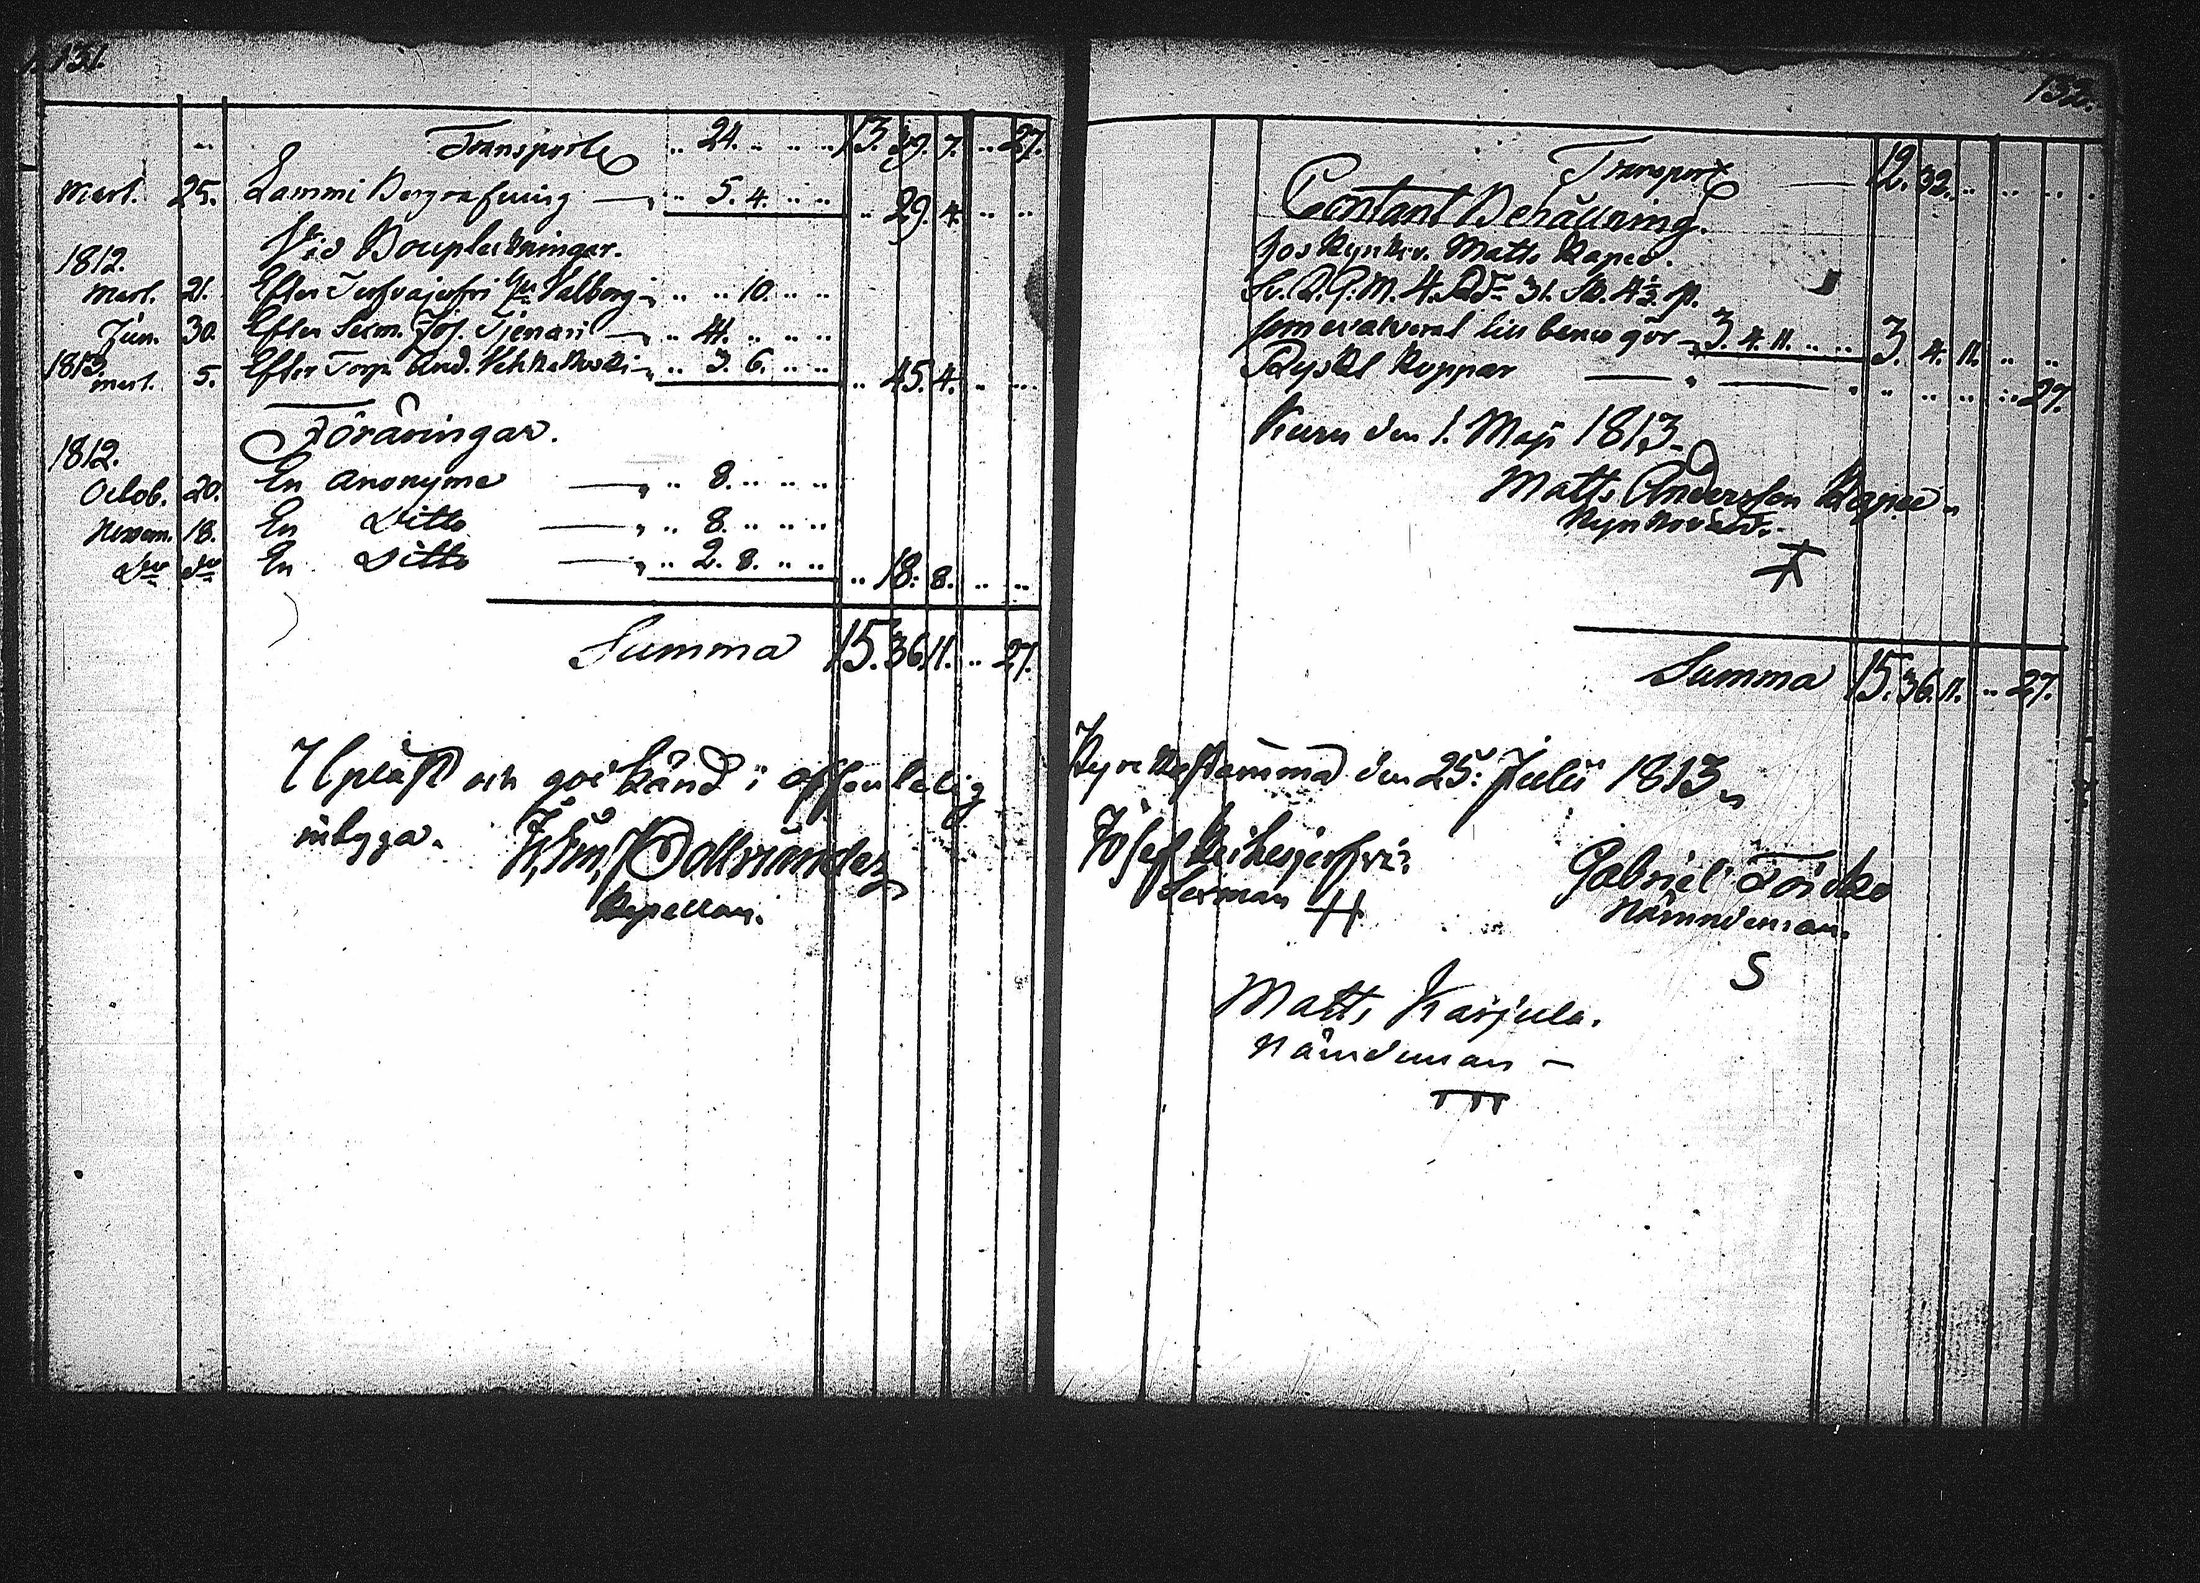 131.
Transport .. 24. .. .. .. 13. 39. 7. .. 27.
Mart. 25. Lammi Begrafning — .. 5. 4. .. .. .. 29. 4. .. ..
Vid Boupteckningar.
1812.
Mart. 21. Efter Valborg .. .. 10. .. ..
Jun. 30. Efter Sexm. Jos. Tjenari — .. 41. .. .. ..
1813.
Mart. 5. Efter Torp. And. — .. 3. 6. .. .. .. 45. 4. .. ..
Föräringar.
1812.
Octob. 20. En Anonyme — .. 8. .. .. ..
Novem. 18. En Ditto — .. 8. .. .. ..
Do Do En Ditto — .. 2. 8. .. .. .. 18. 8. .. ..
Summa 15. 36. 11. .. 27.
Upläst och godkänd i offentelig
intyga.
Kapellan.
132.
Transport — 12. 32. .. .. .. .
Contant Behållning.
hos Kyrkov. Matts Rapeo.
Sv. R. G. M. 4. Rdr 31. Sk. 4½ p.
som evalveral till banco gör — 3. 4. 11. .. .. 3. 4. 11. .. ..
Ryskt Koppar — " — " .. .. .. .. 27.
Kuru den 1. Maji 1813.
Matts Andersson Rapeo
Kyrkovärd.
Summa 15. 36. 11. .. 27.
Kyrkostämma den 25: Julii 1813
Josef
Sexman H
Gabriel Toicko
Nämndeman.
S
Matts Karjula.
Nämdeman —